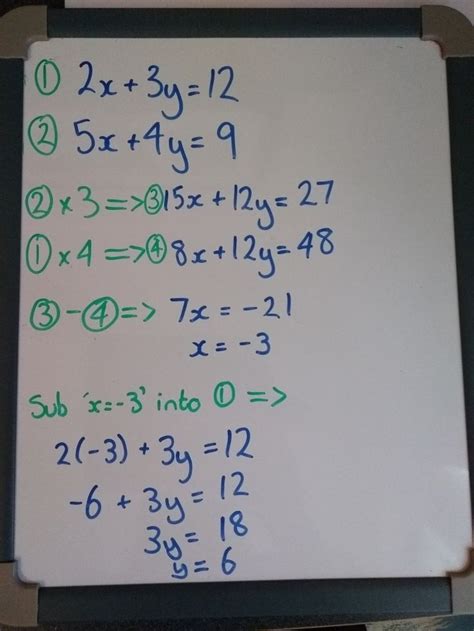 ① 2x + 3y = 12
② 5x + 4y = 9
② × 3 => ③ 15x + 12y = 27
① × 4 => ④ 8x + 12y = 48
③ - ④ => 7x = -21
x = -3
Sub 'x=-3' into ① =>
2(-3) + 3y = 12
-6 + 3y = 12
3y = 18
y = 6